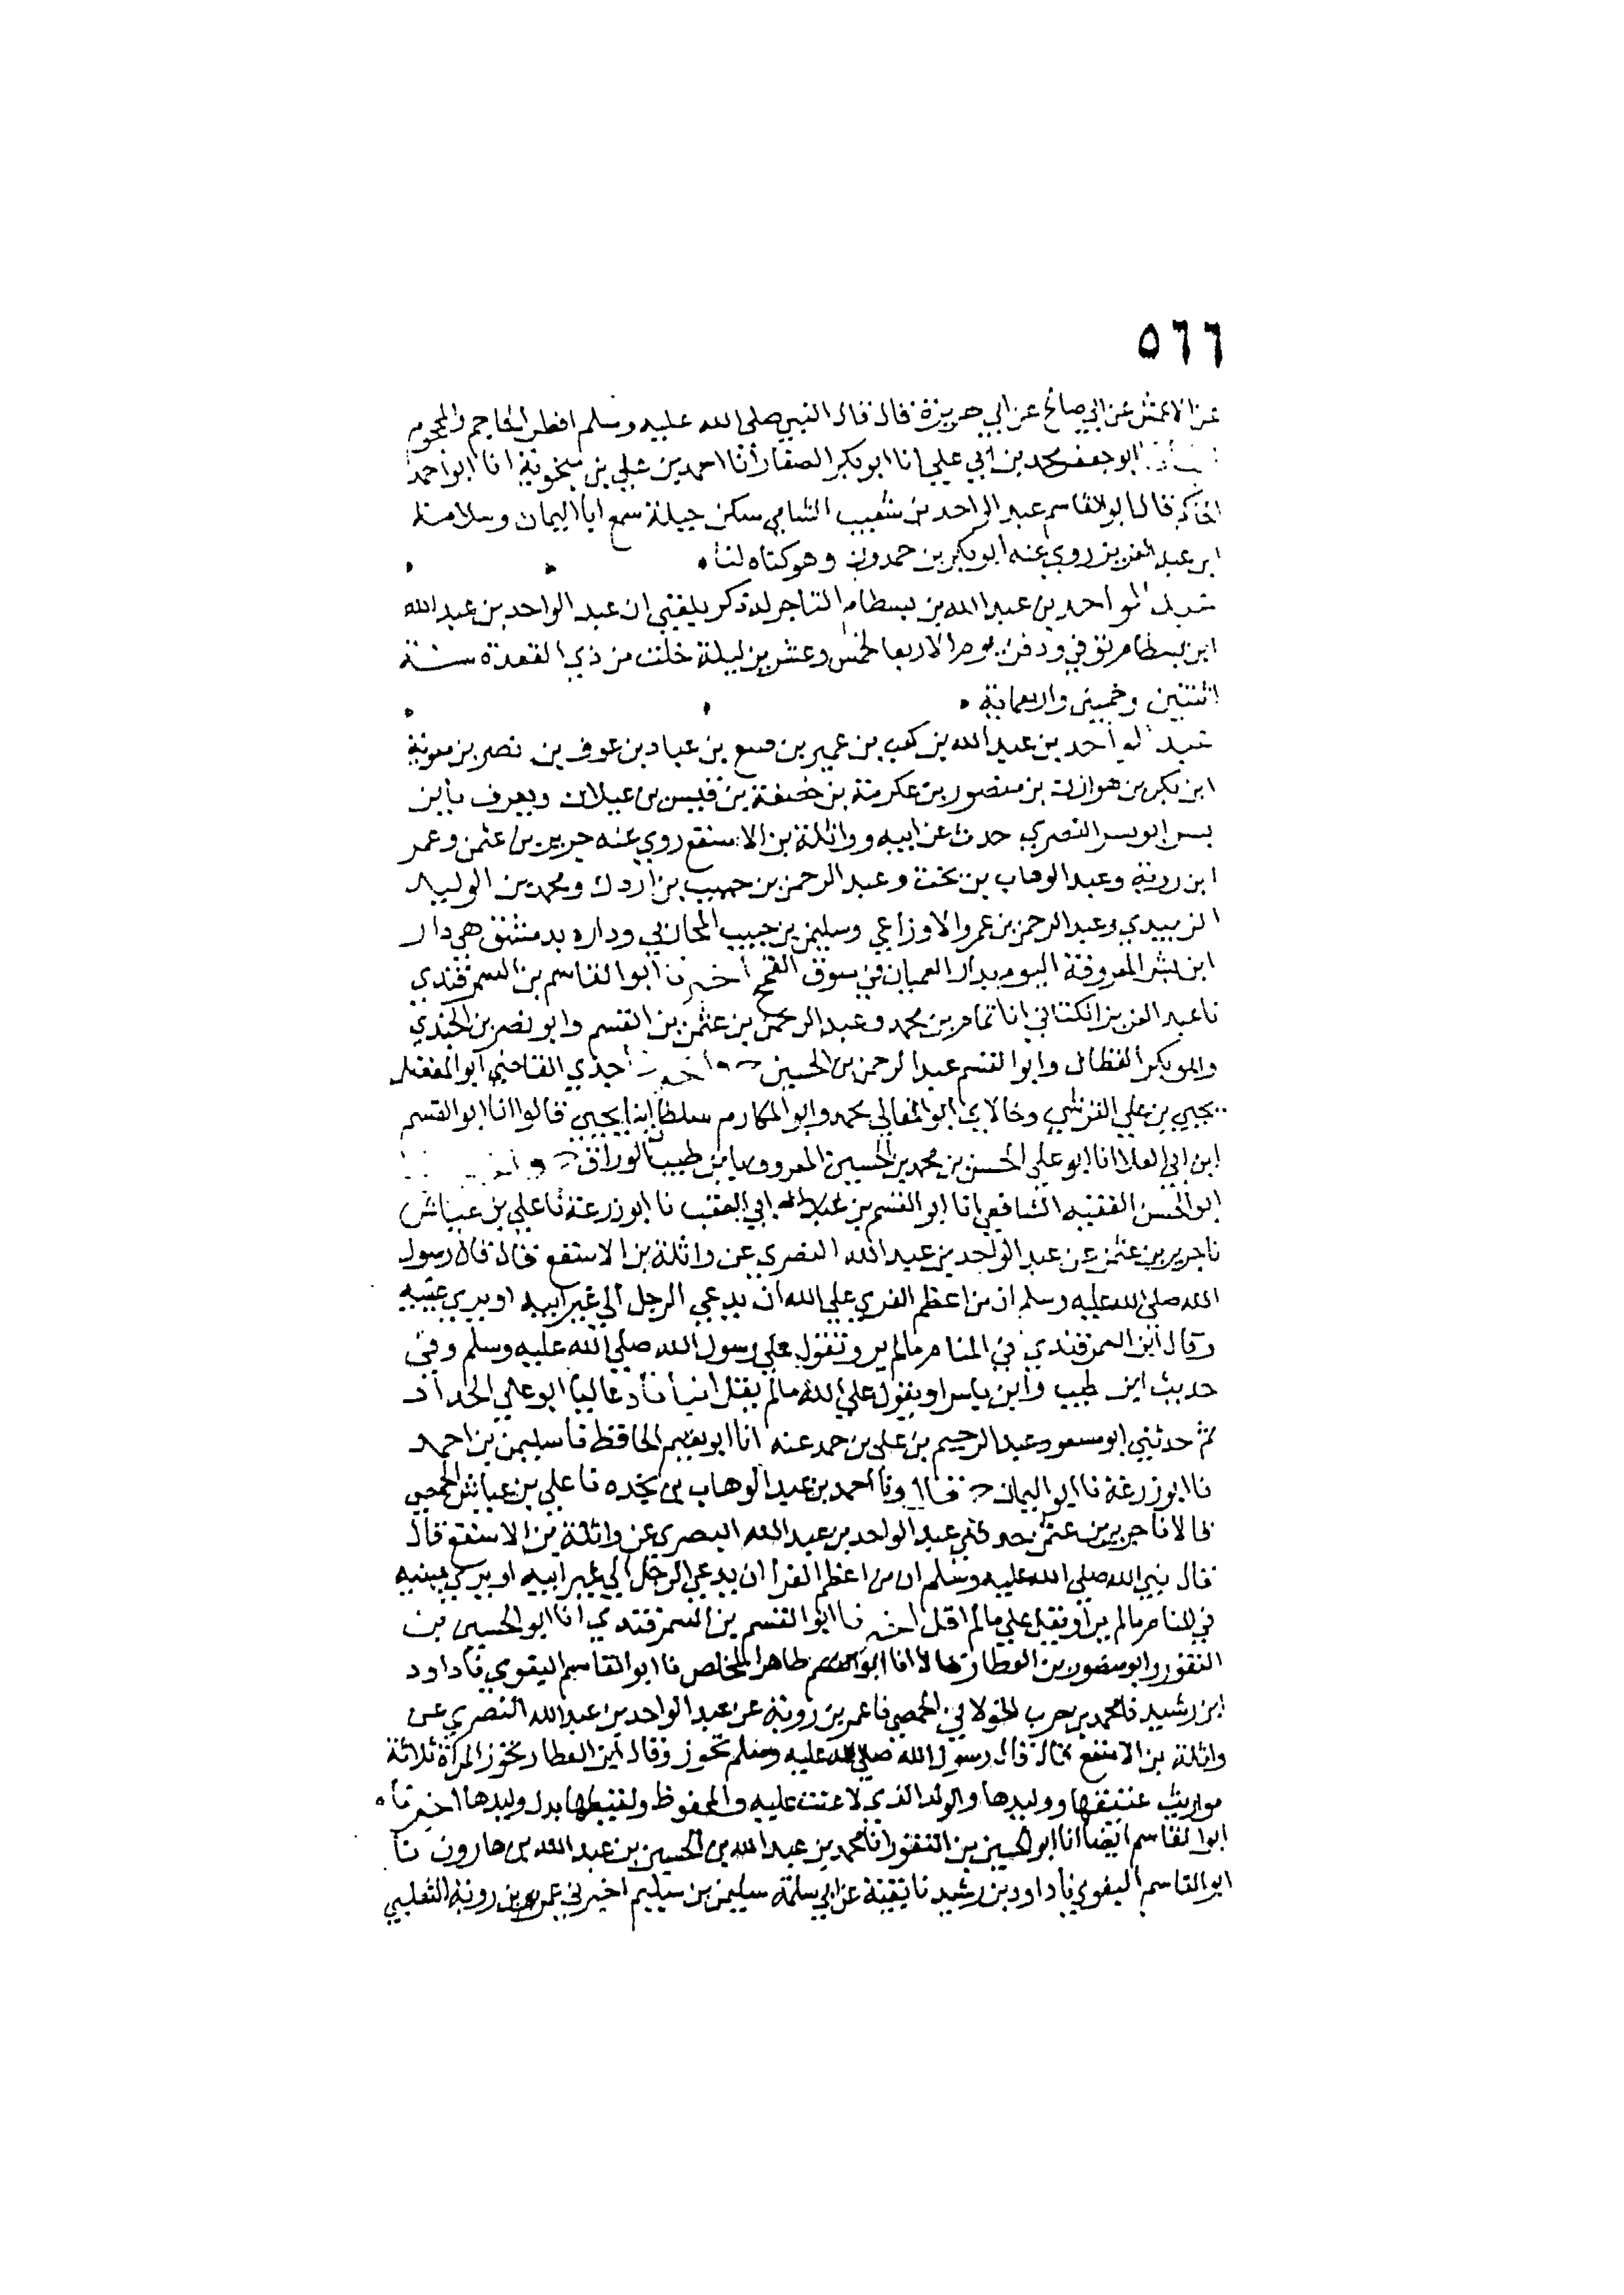 ٥٦٦
عن الاعمش عن ابي صالح عن ابي هريرة قال قال النبي صلى الله عليه وسلم افطر الحاجم والمحجوم
ابو جعفر محمد بن ابي علي انا ابو بكر الصفار انا احمد بن علي بن منجويه انا ابو احمد
الحاكم قال ابو القاسم عبد الواحد بن شعيب الشامي سكن جبلة سمع ابا اليمان وسلامة
ابن عبد العزيز روي عنه ابو بكر بن حمدون وهو كناه لنا
عبد الواحد بن عبد الله بن بسطام التاجر له ذكر بلغني ان عبد الواحد بن عبد الله
ابن بسطام توفي ودفن يوم الاربعا لخمس وعشرين ليلة خلت من ذي القعدة سنة
اثنتين وخمسين واربعماية
عبد الواحد بن عبد الله بن كعب بن عمير بن قنيع بن عباد بن عوف بن نصر بن معوية
ابن بكر بن هوازن بن منصور بن عكرمة بن خصفة بن قيس بن عيلان ويعرف بابن
بسر ابو بسر النصري حدث عن ابيه وواثلة بن الاسقع روي عنه حريز بن عثمن وعمر
ابن روبة وعبد الوهاب بن بخت وعبد الرحمن بن حبيب بن اردك ومحمد بن الوليد
الزبيدي وعبد الرحمن بن عمرو الاوزاعي وسليمن بن حبيب المحاربي وداره بدمشق هي دار
ابن بشر المعروفة اليوم بدار العميان في سوق القمح اخبرنا ابو القاسم بن السمرقندي
نا عبد العزيز الكتاني انا تمام بن محمد وعبد الرحمن بن عثمن بن القسم وابو نصر بن الجندي
وابو بكر القطان وابو القسم عبد الرحمن بن الحسين ح واخبرنا جدي القاضي ابو المفضل
يحيي بن علي القرشي وخالاي ابو المعالي محمد وابو المكارم سلطان ابنا يحيي قالوا انا ابو القسم
ابن ابي العلا انا ابو علي الحسن بن محمد بن الحسين المعروف بابن طبيب الوراق ح
ابو الحسن الفقيه الشافعي انا ابو القسم بن ابي العقب نا ابو زرعة نا علي بن عياش
نا حريز بن عثمن عن عبد الواحد بن عبد الله النصري عن واثلة بن الاسقع قال قال رسول
الله صلى الله عليه وسلم ان من اعظم الفري علي الله ان يدعي الرجل الي غير ابيه او يري عينيه
وقال ابن السمرقندي في المنام مالم ير وتقول علي رسول الله صلي الله عليه وسلم وفي
حديث ابن طبيب وابن ياسر او يقول علي الله مالم يقل انبأناه عاليا ابو علي الحداد
ثم حدثني ابو مسعود عبد الرحيم بن علي بن حمد عنه انا ابو نعيم الحافظ نا سليمن بن احمد
نا ابو زرعة نا ابو اليمان ح قال ونا احمد بن عبد الوهاب بن نجده نا علي بن عياش الحمصي
قالا نا حريز بن عثمن حدثني عبد الواحد بن عبد الله النصري عن واثلة بن الاسقع قال
قال نبي الله صلي الله عليه وسلم ان من اعظم الفرا ان يدعي الرجل الي غير ابيه او يري عينيه
في المنام مالم ير او يقل علي مالم اقل اخبرنا ابو القسم بن السمرقندي انا ابو الحسين بن
النقور وابو منصور بن العطار قالا انا ابو طاهر المخلص نا ابو القاسم البغوي نا داود
ابن رشيد نا محمد بن حرب الخولاني الحمصي نا عمر بن روبة عن عبد الواحد بن عبد الله النصري عن
واثلة بن الاسقع قال قال رسول الله صلي الله عليه وسلم تحوز وقال ابن العطار تحوز المرأة ثلاثة
مواريث عتيقها ووليدها والولد الذي لاعنت عليه والمحفوظ ولقيطها بدل وليدها اخبرنا
ابو القاسم ايضا انا ابو الحسين بن النقور انا محمد بن عبد الله بن الحسين بن عبد الله بن هارون نا
ابو القاسم البغوي نا داود بن رشيد نا بقية عن ابي سلمة سليمن بن سليم اخبرني عمر بن روبة التغلبي